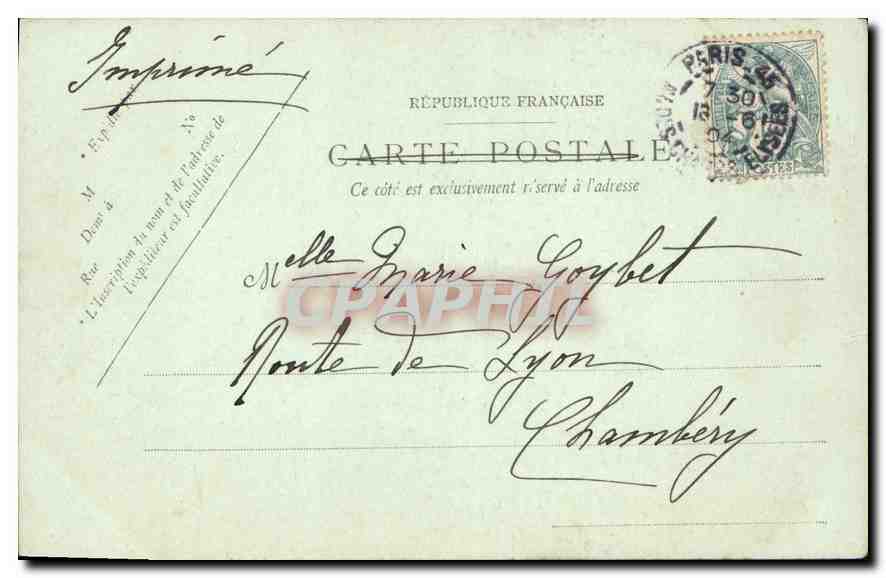 Imprimé
* Exp.
No
M
Demt à
Rue
* L'Inscription du nom et de l'adresse de
l'expéditeur est facultative.
RÉPUBLIQUE FRANÇAISE
CARTE POSTALE
Ce côté est exclusivement réservé à l'adresse
PARIS
7 30
ELYSEES
POSTES
Melle Marie Goybet
CPAPHIL
Route de Lyon
Chambéry